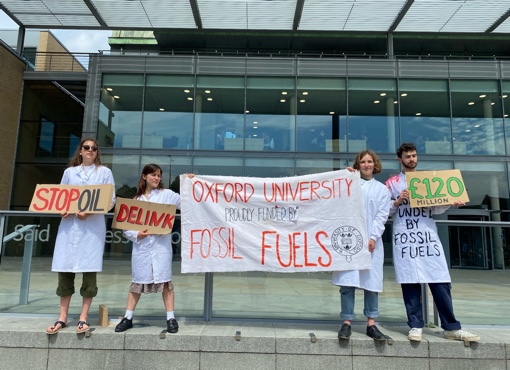 STOP OIL
DELINK
OXFORD UNIVERSITY
PROUDLY FUNDED BY
FOSSIL FUELS
£120
MILLION
FUNDED
BY
FOSSIL
FUELS
Saïd